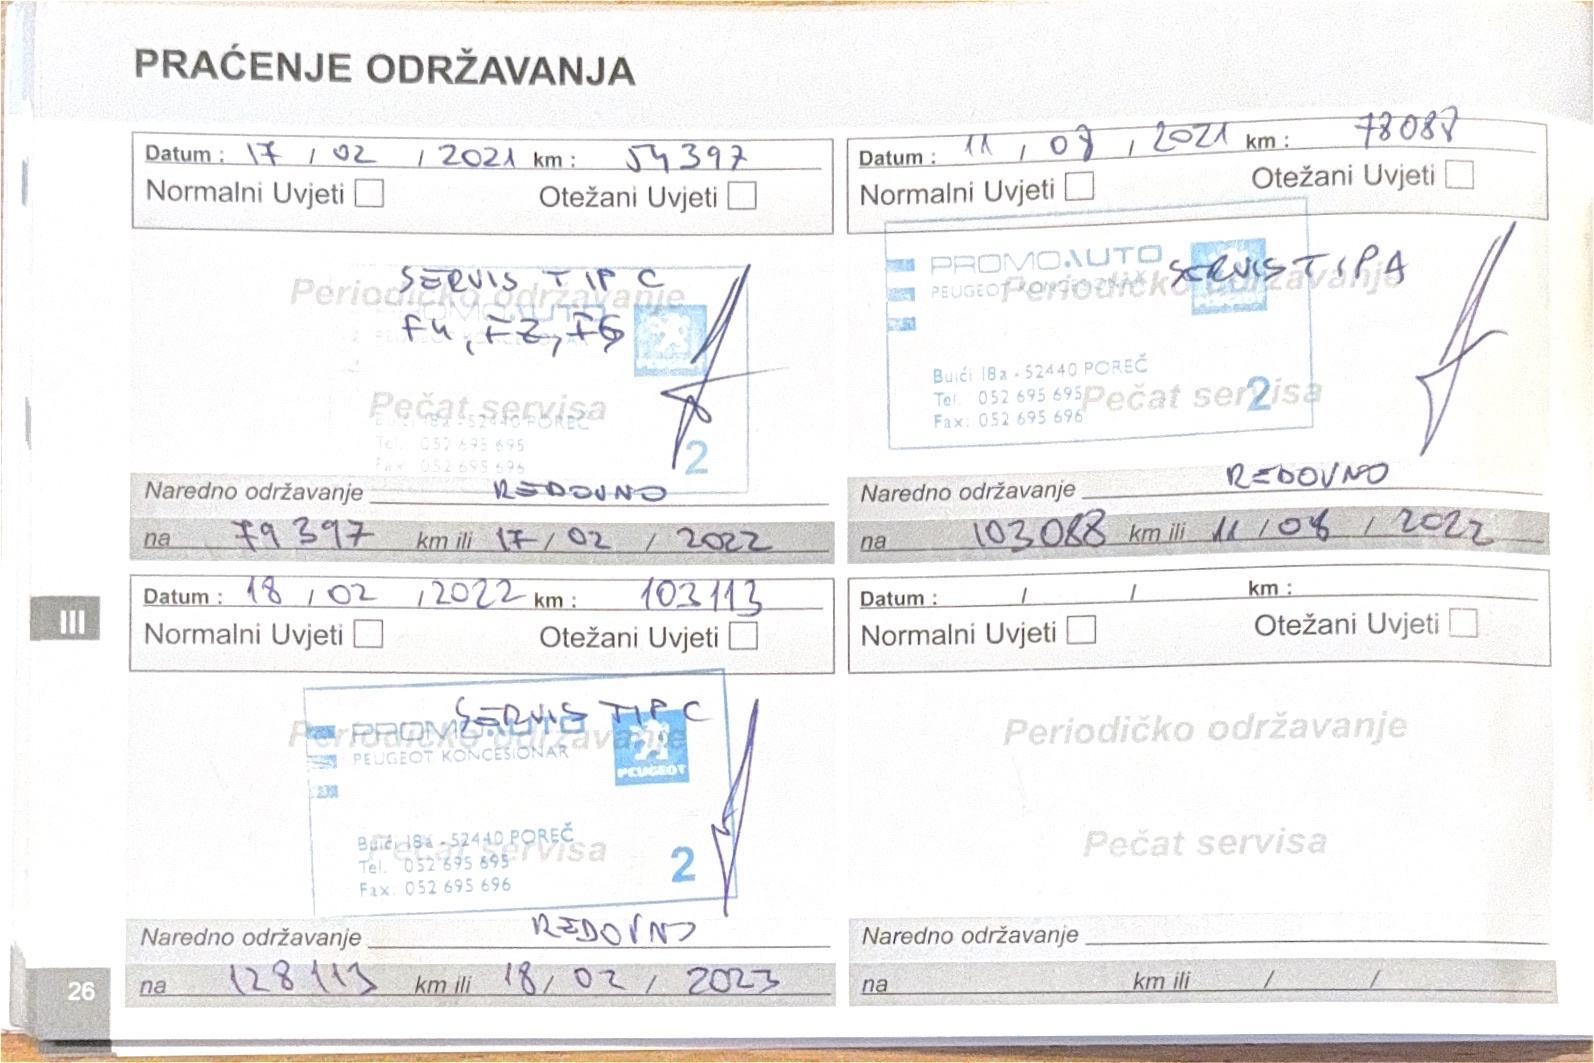 PRAĆENJE ODRŽAVANJA
Datum : 17 / 02 / 2021 km : 54397
Normalni Uvjeti Otežani Uvjeti
SERVIS TIP C
Periodičko održavanje
F4, FZ, FG
Pečat servisa
Buići 18a - 52440 POREČ
Tel. 052 695 695
Fax 052 695 696
2
Naredno održavanje REDOVNO
na 79397 km ili 17 / 02 / 2022
Datum : 11 / 08 / 2021 km : 78088
Normalni Uvjeti Otežani Uvjeti
PROMOAUTO SERVIS TIP A
PEUGEOT KONCESIONAR
Periodičko održavanje
Buići 18a - 52440 POREČ
Tel. 052 695 695
Pečat servisa
2
Fax: 052 695 696
Naredno održavanje REDOVNO
na 103088 km ili 11 / 08 / 2022
III
Datum : 18 / 02 / 2022 km : 103113
Normalni Uvjeti Otežani Uvjeti
SERVIS TIP C
PROMOAUTO
Periodičko održavanje
PEUGEOT KONCESIONAR
PEUGEOT
Buići 18a - 52440 POREČ
Pečat servisa
Tel. 052 695 695
Fax: 052 695 696
2
Naredno održavanje REDOVNO
na 128113 km ili 18 / 02 / 2023
Datum : / / km :
Normalni Uvjeti Otežani Uvjeti
Periodičko održavanje
Pečat servisa
Naredno održavanje
na km ili / /
26